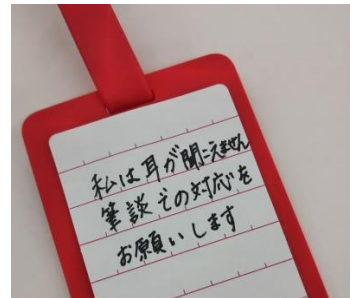 私は耳が聞こえません
筆談での対応を
お願いします